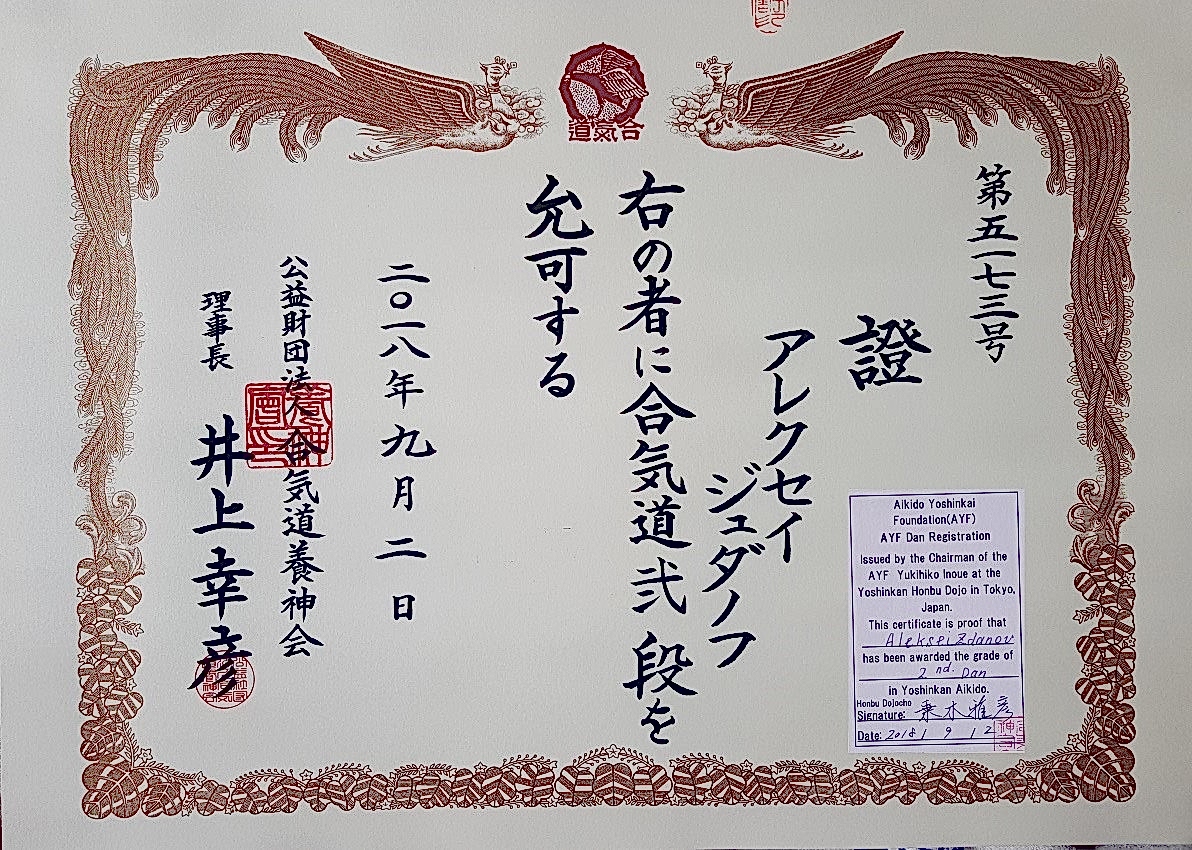 合気道
第五一七三号
證
アレクセイ
ジュダノフ
右の者に合気道弐段を
允可する
二〇一八年九月二日
公益財団法人合気道養神会
理事長 井上幸彦
Aikido Yoshinkai
Foundation(AYF)
AYF Dan Registration
Issued by the Chairman of the
AYF Yukihiko Inoue at the
Yoshinkan Honbu Dojo in Tokyo,
Japan.
This certificate is proof that
Aleksei Zdanov
has been awarded the grade of
2nd. Dan
in Yoshinkan Aikido.
Honbu Dojocho
Signature:
Date: 2018 / 9 / 2